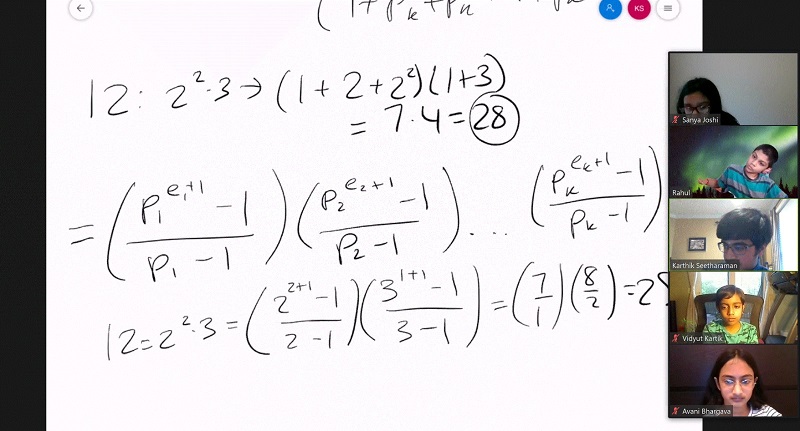 KS
(1+p_k+p_k
12: 2^2·3→(1+2+2^2)(1+3)
= 7·4=28
=((p_1^{e_1+1}-1)/(p_1-1))((p_2^{e_2+1}-1)/(p_2-1))...((p_k^{e_k+1}-1)/(p_k-1))
12=2^2·3=((2^{2+1}-1)/(2-1))((3^{1+1}-1)/(3-1))=(7/1)(8/2)=28
Sanya Joshi
Rahul
Karthik Seetharaman
Vidyut Kartik
Avani Bhargava